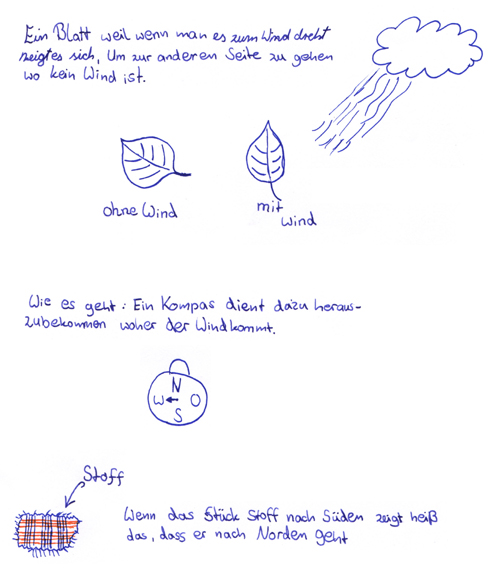 Ein Blatt weil wenn man es zum Wind dreht
zeigt es sich, Um zur anderen Seite zu gehen
wo kein Wind ist.
ohne Wind
mit
wind
Wie es geht: Ein Kompas dient dazu heraus-
zubekommen woher der Wind kommt.
N
W
O
S
Stoff
Wenn das Stück Stoff nach Süden zeigt heiß
das, dass er nach Norden geht